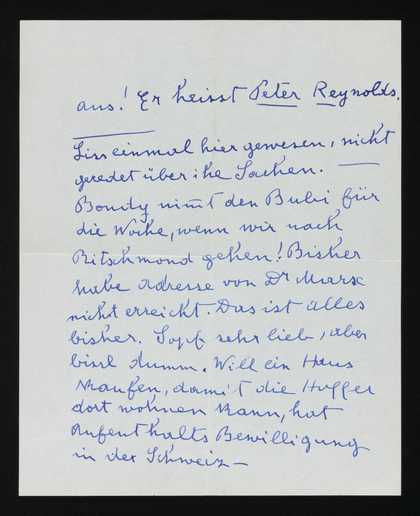 aus! Er heisst Peter Reynolds.
Liss einmal hier gewesen, nicht
geredet über ihe Sachen. —
Bondy nim̅t den Bubi für
die Woche, wenn wir nach
Ritschmond gehen! Bisher
habe Adresse von Dr Marx
nicht erreicht. Das ist alles
bisher. Sopf sehr lieb, aber
bissl dumm. Will ein Haus
kaufen, damit die
dort wohnen kann, hat
Aufenthalts Bewilligung
in der Schweiz —